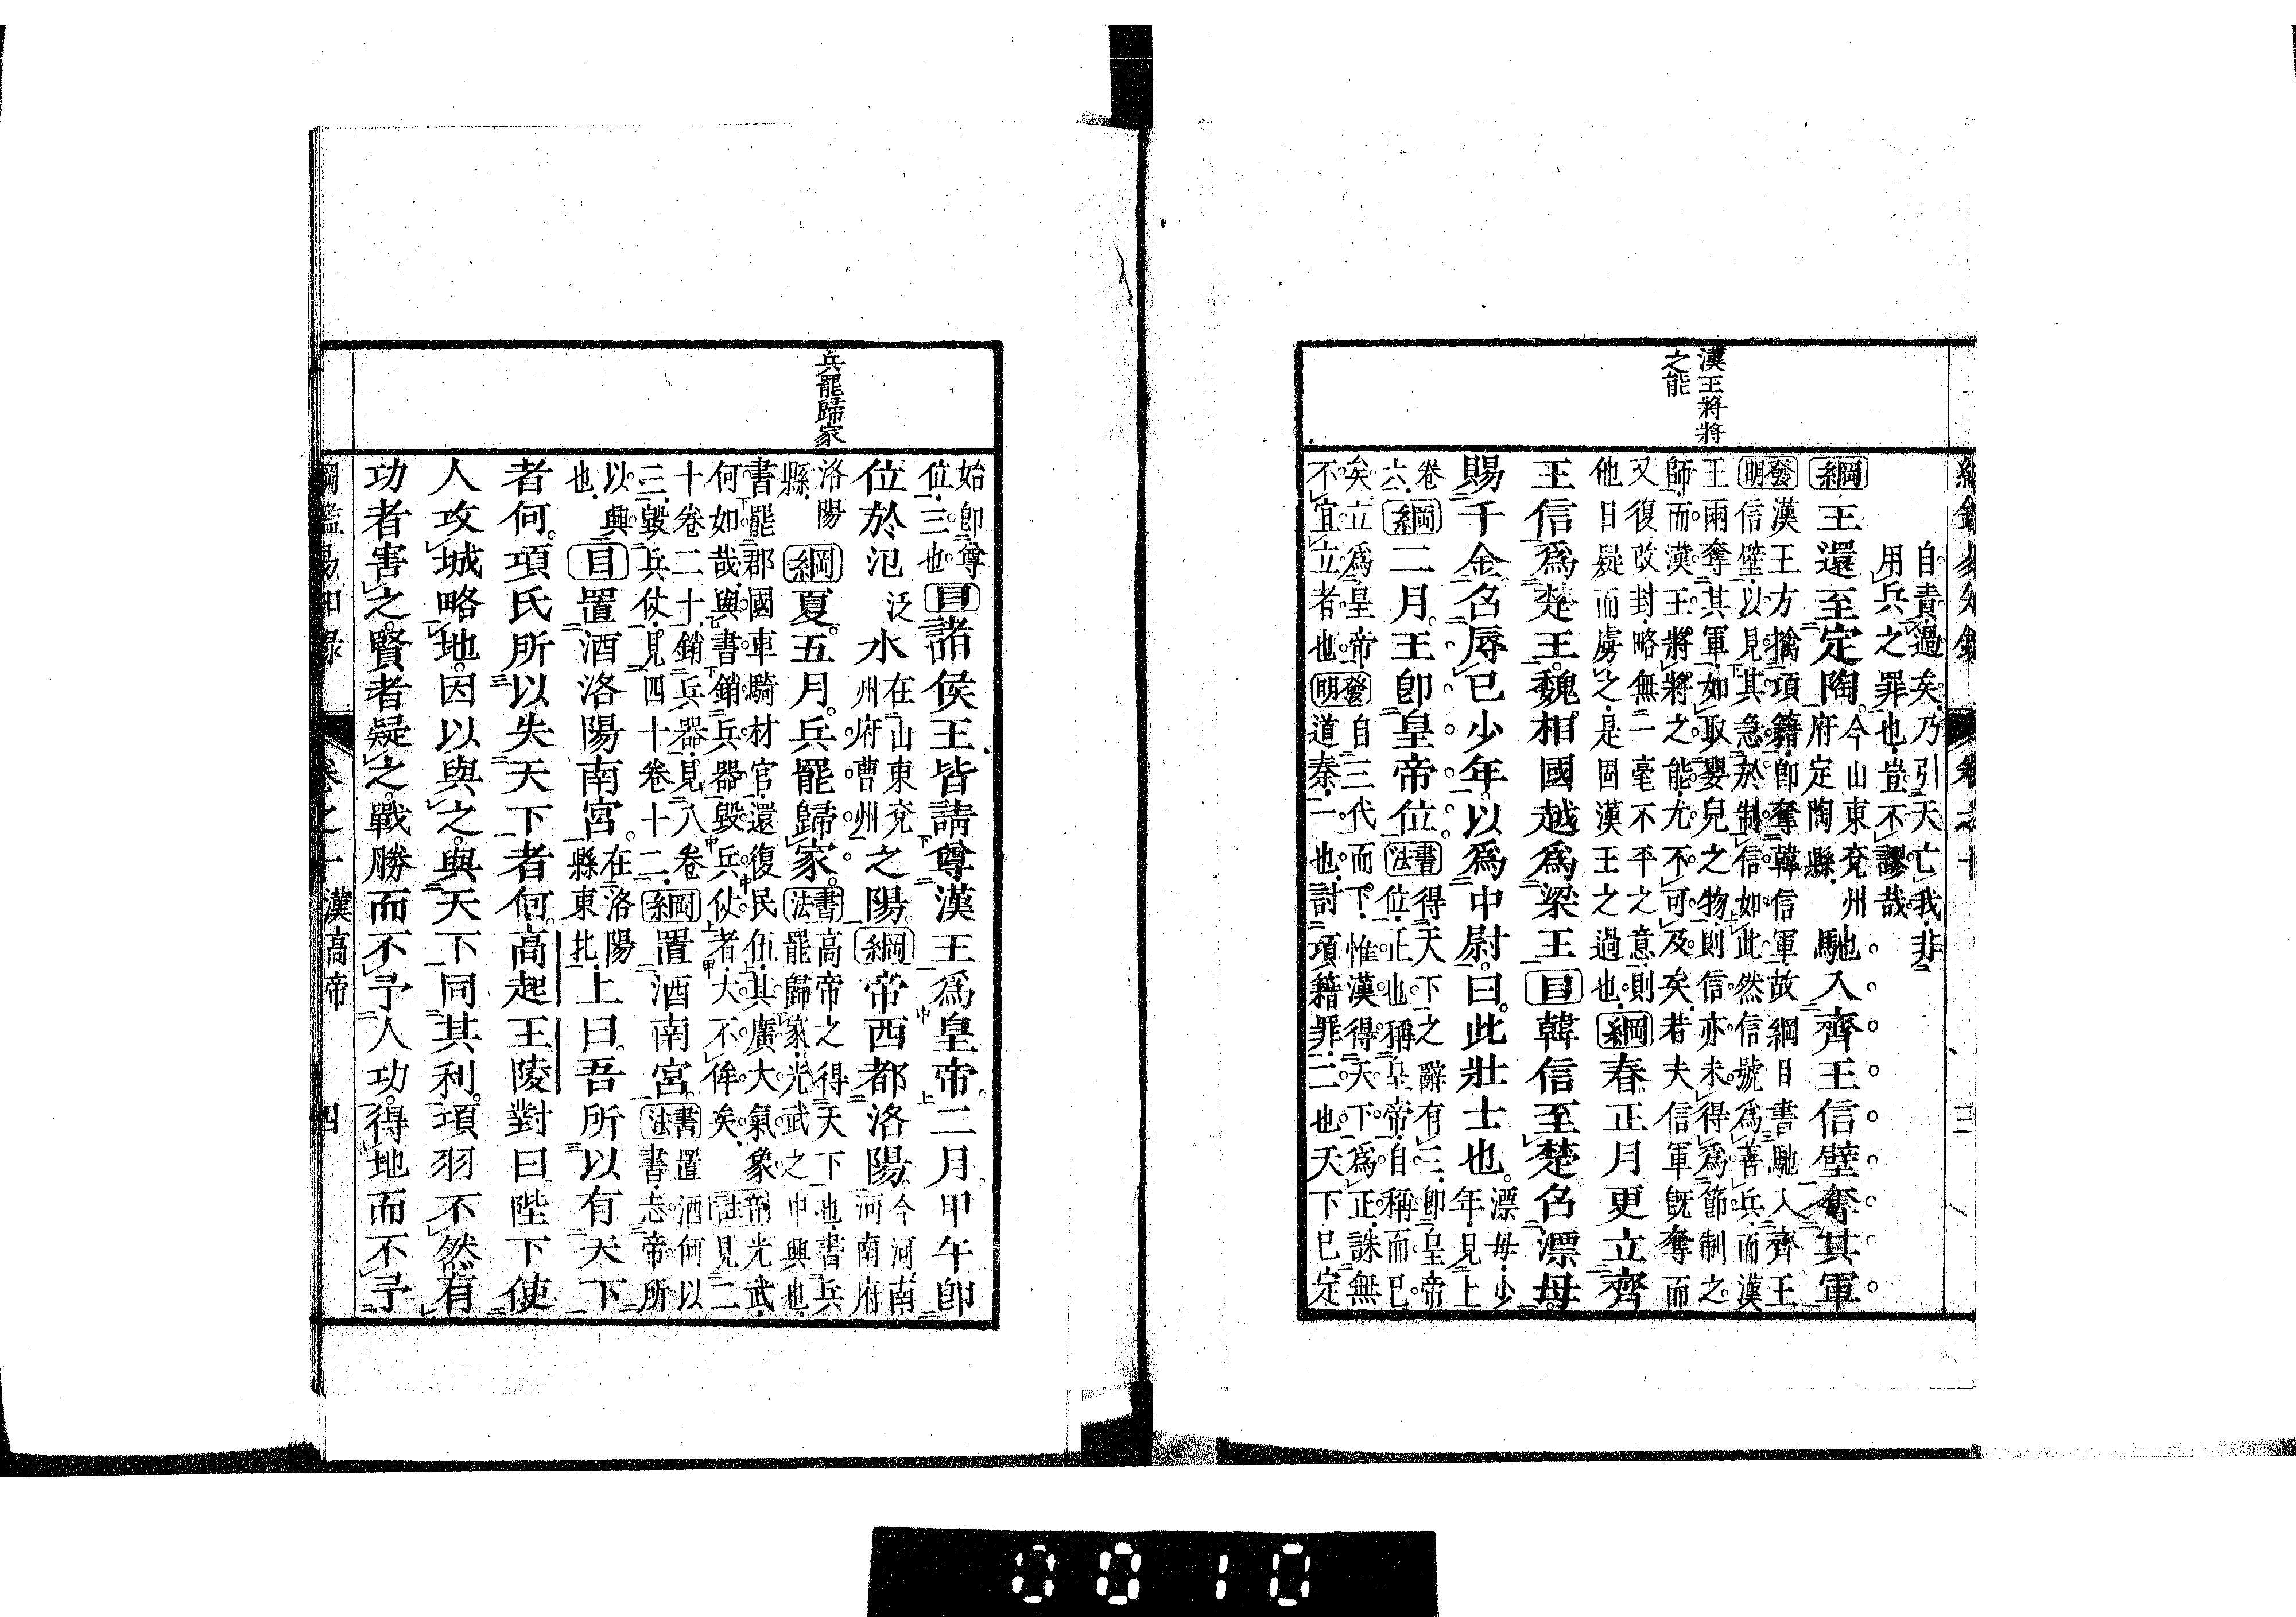 綱鑑易知錄 卷之十 三
漢王將將
之能
自責過矣乃引天亡我非
用兵之罪也豈不謬哉
綱王還至定陶今山東兗州府定陶縣馳入齊王信壁奪其軍
發明漢王方擒項籍卽奪韓信軍故綱目書馳入齊王
信壁以見其急於制信如此然信號爲善兵而漢
王兩奪其軍如取嬰兒之物則信亦未得爲節制之
師而漢王將將之能尤不可及矣若夫信軍既奪而
又復改封略無一毫不平之意則
他日疑而虜之是固漢王之過也綱春正月更立齊
王信爲楚王魏相國越爲梁王目韓信至楚召漂母
賜千金召辱己少年以爲中尉曰此壯士也漂母少年見上
卷六綱二月王卽皇帝位書法得天下之辭有三卽皇帝位正也稱皇帝自稱而已
矣立爲皇帝不宜立者也發明自三代而下惟漢得天下爲正誅無道秦一也討項籍罪二也天下已定
兵罷歸家
始卽尊位三也目諸侯王皆請尊漢王爲皇帝二月甲午卽
位於氾泛水在山東兗州府曹州之陽綱帝西都洛陽今河南河南府
洛陽縣綱夏五月兵罷歸家書法高帝之得天下也書兵罷歸家光武之中興也
書罷郡國車騎材官還復民伍其廣大氣象帝光武
何如哉與書銷兵器毀兵仗者大不侔矣註見二
十卷二十銷兵器見八卷三毀兵仗見四十卷十二綱置酒南宮書法書置酒何以書志帝所
以興也目置酒洛陽南宮在洛陽縣東北上曰吾所以有天下
者何項氏所以失天下者何高起王陵對曰陛下使
人攻城略地因以與之與天下同其利項羽不然有
功者害之賢者疑之戰勝而不予人功得地而不予
綱鑑易知錄 卷之十 漢高帝 四
0010